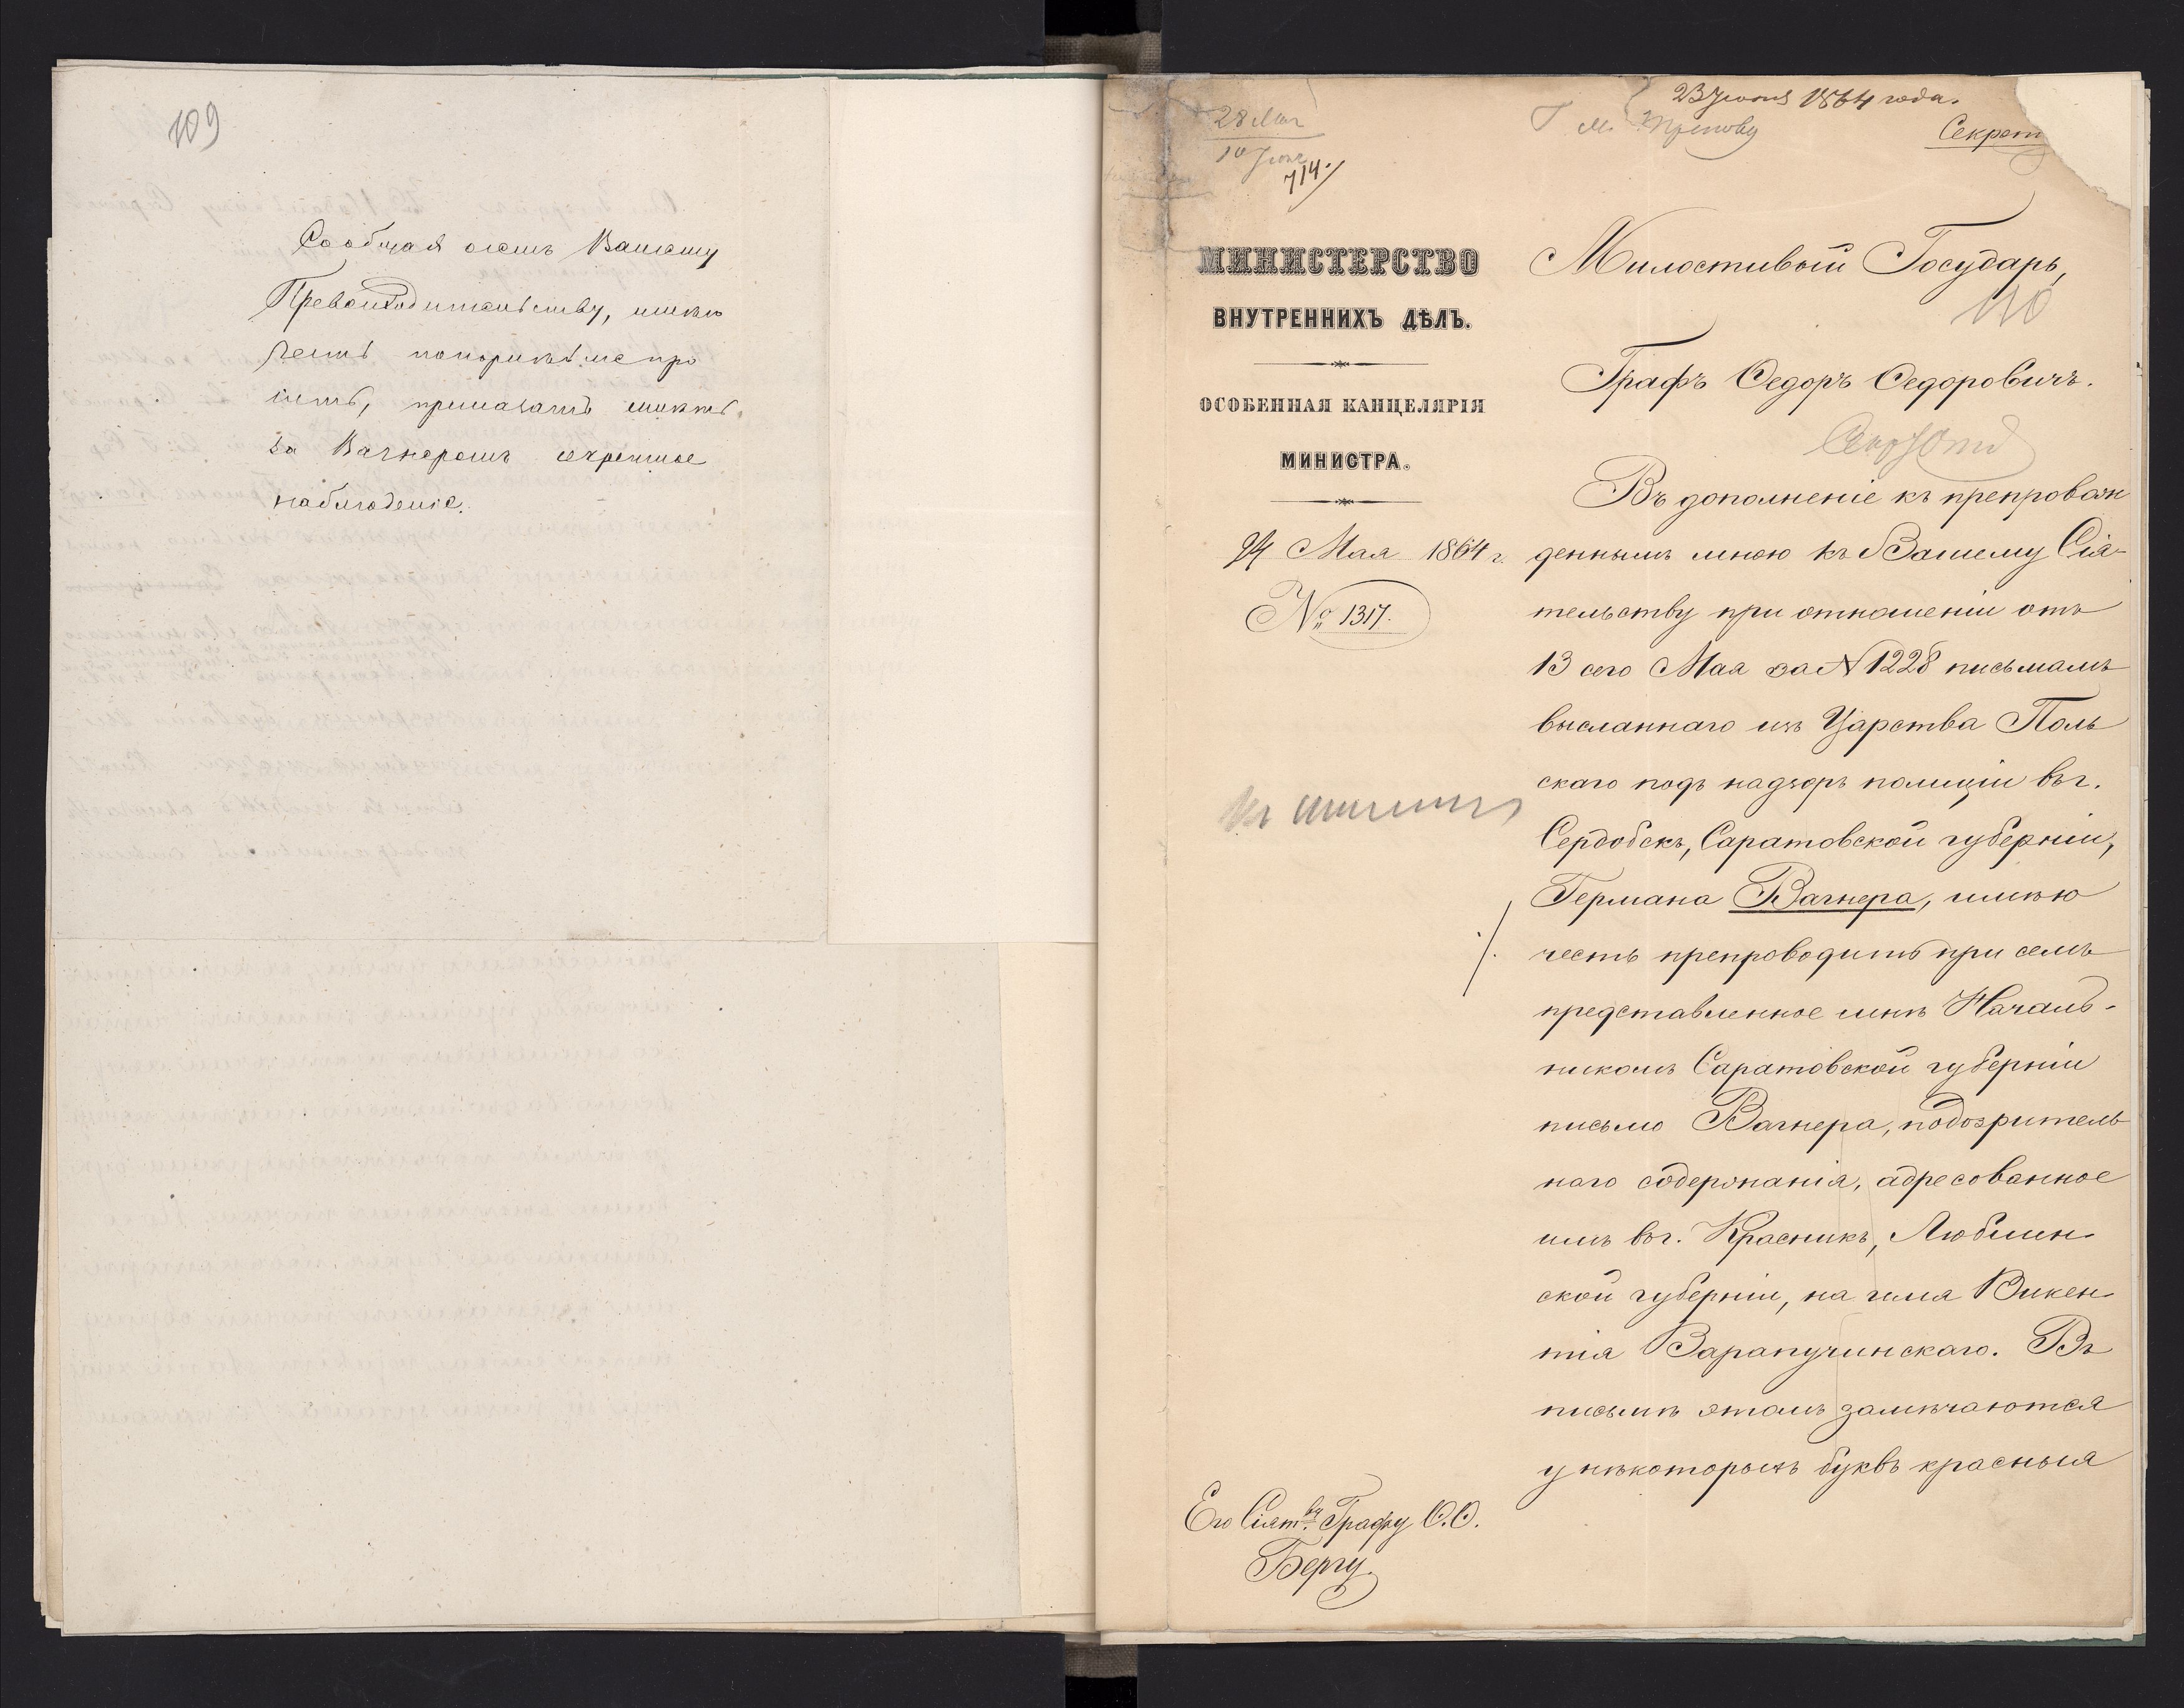 109
Сообщая о семъ Вашему
Превосходительству, имѣю
честь покорнѣйше про
сить, приказать имѣть
за Вагнеромъ секретное
наблюденіе.
28 Мая
10 Іюня
714.
23 Іюня 1864 года.
Секрет
МИНИСТЕРСТВО
ВНУТРЕННИХЪ ДѢЛЪ.
ОСОБЕННАЯ КАНЦЕЛЯРІЯ
МИНИСТРА.
24 Мая 1864 г.
№ 1317.
Милостивый Государь,
110
Графъ Ѳедоръ Ѳедоровичъ.
Въ дополненіе къ препровож
деннымъ мною къ Вашему Сія-
тельству при отношеніи отъ
13 сего Мая за N 1228 письмамъ
высланнаго изъ Царства Поль
скаго подъ надзоръ полиціи въ г.
Сердобскъ, Саратовской губерніи,
Германа Вагнера, имѣю
честь препроводить при семъ
представленное мнѣ Началь-
никомъ Саратовской губерніи
письмо Вагнера, подозритель
наго содержанія, адресованное
имъ въ г. Красникъ, Люблин-
ской губерніи, на имя Викен-
тія Варапучинскаго. Въ
письмѣ этомъ замѣчаются
у нѣкоторыхъ буквъ красныя
Его Сіят-ву Графу Ѳ.Ѳ.
Бергу.